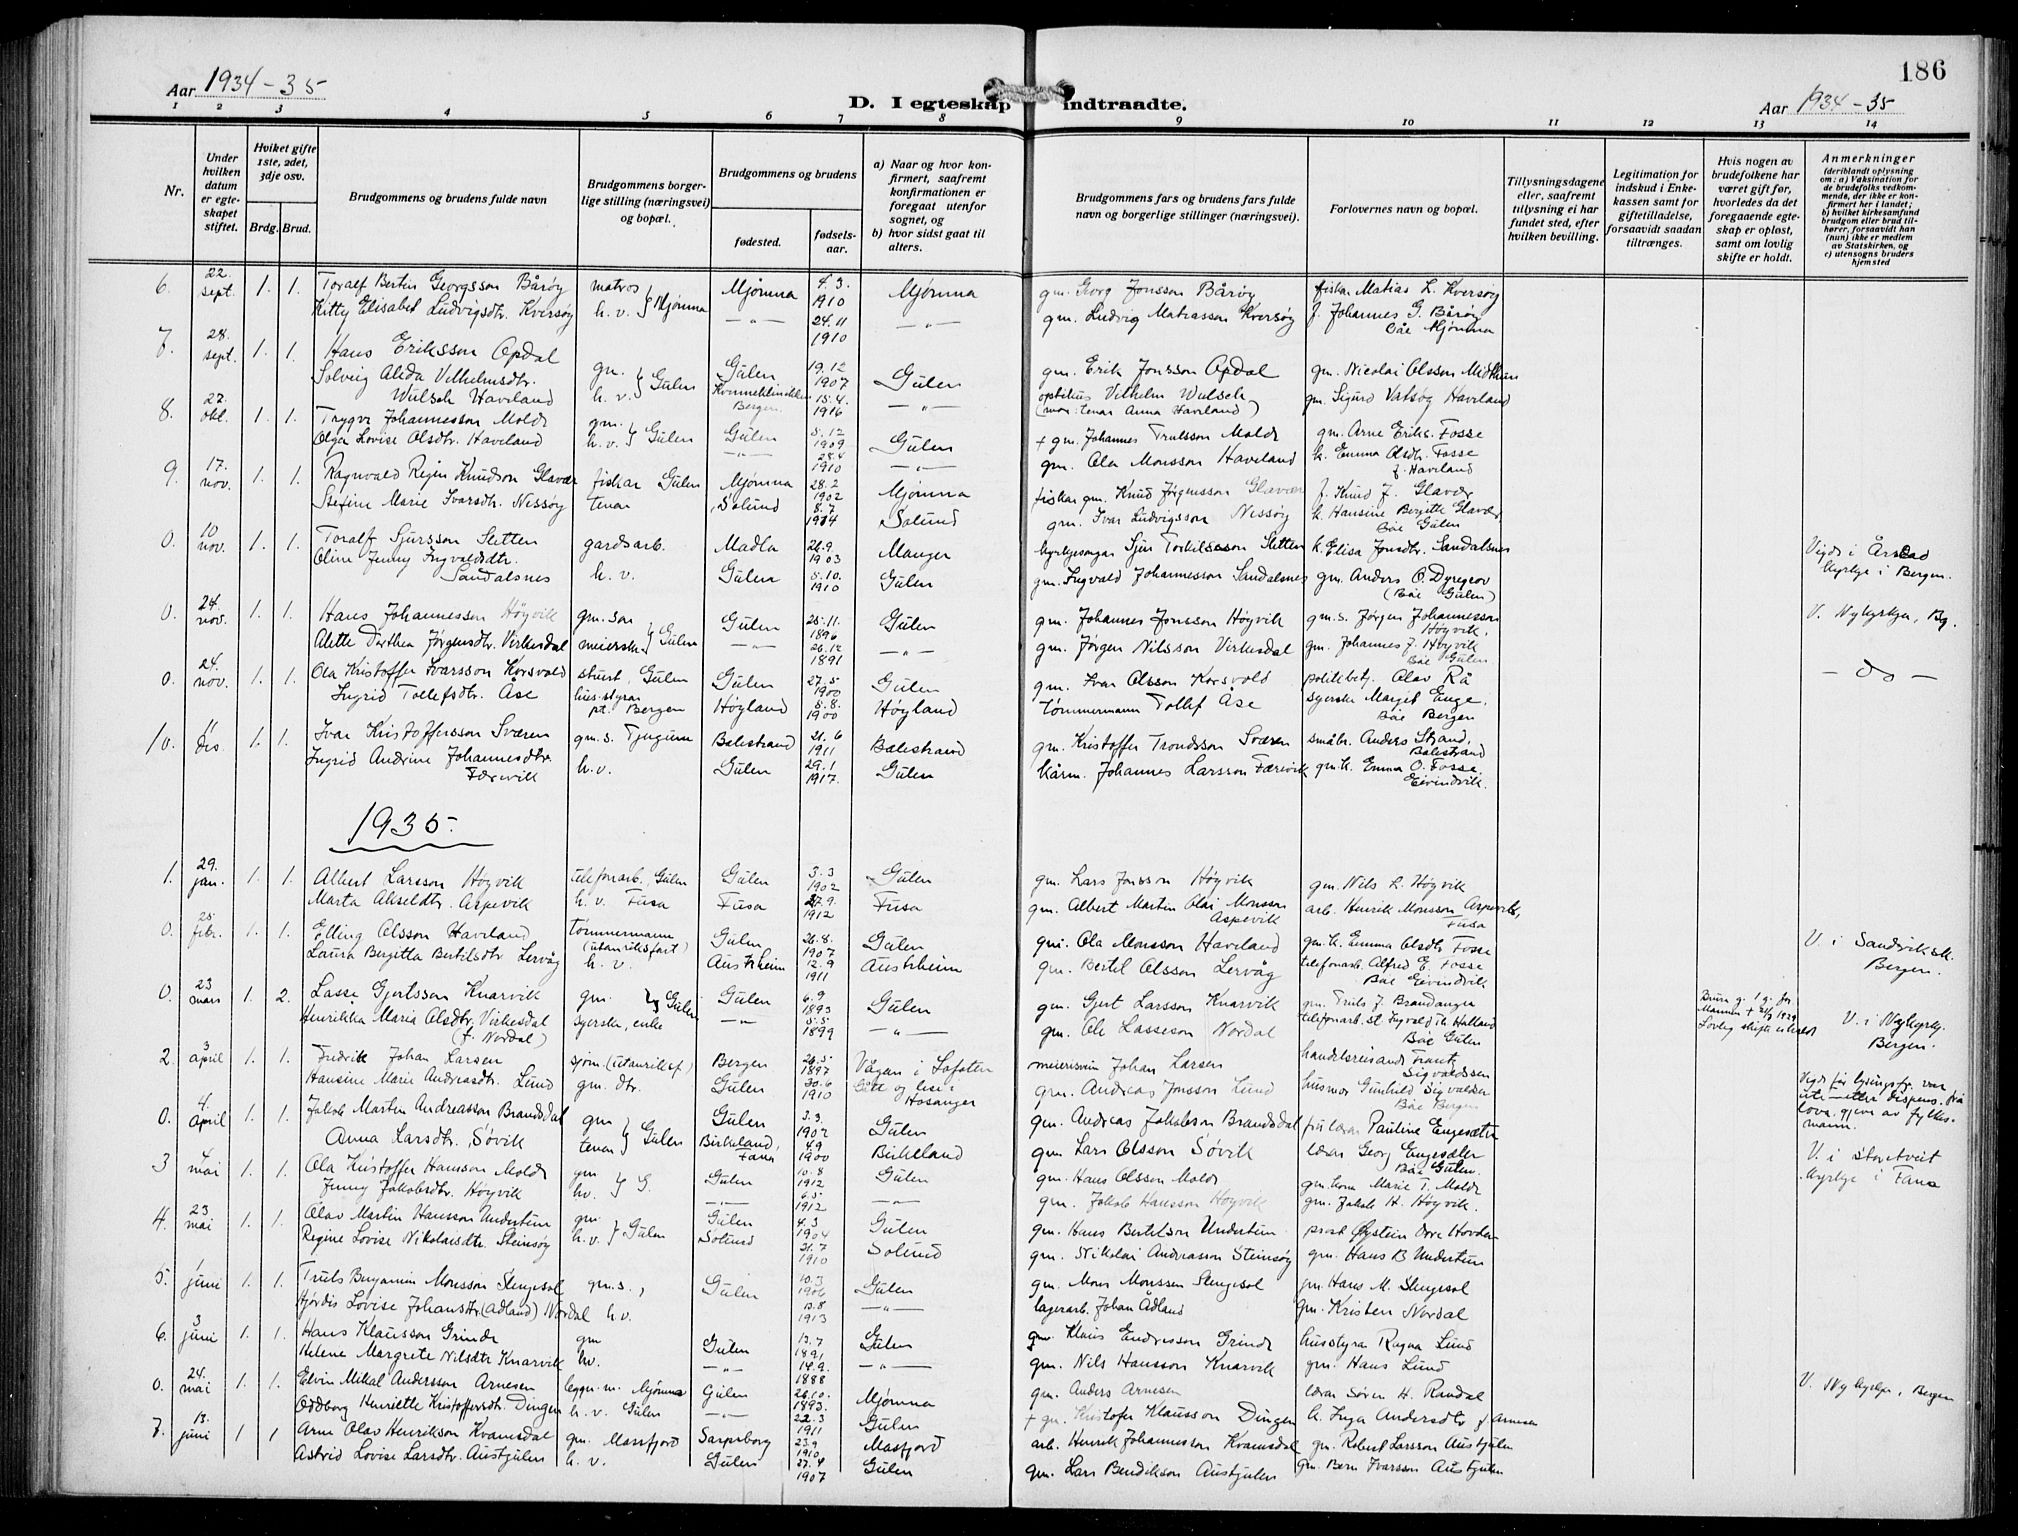 186
Aar 1934-35
D. I egteskap indtraadte.
Aar 1934-35
1 2 3 4 5 6 7 8 9 10 11 12 13 14
Nr.
Under hvilken datum er egteskapet stiftet.
Hviket gifte 1ste, 2det, 3dje osv.
Brdg. Brud.
Brudgommens og brudens fulde navn
Brudgommens borgerlige stilling (næringsvei) og bopæl.
Brudgommens og brudens
fødested.
fødselsaar.
a) Naar og hvor konfirmert, saafremt konfirmationen er foregaat utenfor sognet, og
b) hvor sidst gaat til alters.
Brudgommens fars og brudens fars fulde navn og borgerlige stillinger (næringsvei).
Forlovernes navn og bopæl.
Tillysningsdagene eller, saafremt tillysning ei har fundet sted, efter hvilken bevilling.
Legitimation for indskud i Enkekassen samt for giftetilladelse, forsaavidt saadan tiltrænges.
Hvis nogen av brudefolkene har været gift før, hvorledes da det foregaaende egteskap er opløst, samt om lovlig skifte er holdt.
Anmerkninger
(deriblandt oplysning om: a) Vaksination for de brudefolks vedkommende, der ikke er konfirmert her i landet; b) hvilket kirkesamfund brudgom eller brud tilhører, forsaavidt han (hun) ikke er medlem av Statskirken, og c) utensogns bruders hjemsted
6. 22. sept. 1. 1. Toralf Bertin Georgsson Bårøy matros Mjømna Mjømna 4.3. 1910 Mjømna gm. Georg Jonsson Bårøy fiskar Matias L. Kversøy
Kitty Elisabet Ludvigsdtr. Kversøy h.v. — " — 24.11 1910 — " — gm. Ludvig Matiasson Kversøy f. Johannes G. Bårøy Båe Mjømna
7. 28. sept. 1. 1. Hans Eriksson Opdal gm. Gulen Gulen 19.12 1907 Gulen gm. Erik Jonsson Opdal gm. Nicolai Olsson Midthun
Solveig Alida Vilhelmsdtr. Wulsch Haveland h.v. Kvinneklinikken Bergen 15.4. 1916 — " — optikus Vilhelm Wulsch (mor: tenar Anna Haveland) gm. Sigurd Vatsøy Haveland
8. 27. okt. 1. 1. Trygve Johannesson Molde gm. Gulen Gulen 5.12 1909 Gulen + gm. Johannes Trulsson Molde gm. Arne Eriks. Fosse
Olga Lovise Olsdtr. Haveland h.v. — " — 28.4 1910 — " — gm. Ola Monsson Haveland k. Emma Olsdtr. Fosse f. Haveland
9. 17. nov. 1. 1. Ragnvald Regin Knudson Glavær fiskar Gulen Mjømna 28.2 1902 Mjømna fiskar gm. Knud Jørgensson Glavær f. Knud J. Glavær
Stefine Marie Ivarsdtr. Nessøy tenar Solund 8.7 1904 Solund gm. Ivar Ludvigsson Nessøy k. Hansine Bergitte Glavær, Båe Gulen
0. 10 nov. 1. 1. Toralf Sjursson Sletten gardsarb. Madla 26.9. 1903 Manger kyrkjesongar Sjur Torkilsson Sletten k. Elisa Jonsdtr. Sandalsnes Vigde i Årstad kyrkje i Bergen.
Oline Jenny Ingvaldsdtr. Sandalsnes h.v. Gulen 5.10. 1910 Gulen gm. Ingvald Johannesson Sandalsnes gm. Anders O. Dyregrov (Båe Gulen)
0. 24. nov. 1. 1. Hans Johannesson Høyvik gm. son Gulen Gulen 25.11. 1896 Gulen gm. Johannes Jonsson Høyvik gm.s. Jørgen Johannesson Høyvik. V. Nykyrkja, Bg.
Alette Dorthea Jørgensdtr. Virkesdal meierske — " — 26.12 1891 — " — gm. Jørgen Nilsson Virkesdal gm. Johannes J. Høyvik Båe Gulen
0. 24. nov. 1. 1. Ola Kristoffer Ivarsson Korsvold stuert, Gulen Gulen 27.5 1900 Gulen gm. Ivar Olsson Korsvold politibetj. Olav Rå — do —
Ingrid Tollefsdtr. Åse hus-styrar pt. Bergen Høyland 8.8. 1900 Høyland Tømmermann Tollef Åse syerske Margit Enge. Båe Bergen
10. 11 des 1. 1. Ivar Kristoffersson Sværen gm.s. Tjugum Balestrand 21.6 1911 Balestrand gm. Kristoffer Trondsson Sværen småbr. Anders Strand, Balestrand
Ingrid Andrine Johannesdtr. Færevik h.v. Gulen 29.1 1917. Gulen kårm. Johannes Larsson Færevik gm.k. Emma O. Fosse Eivindvik.
1935.
1. 29. jan. 1. 1. Albert Larsson Høyvik telefonarb., Gulen Gulen 3.3 1902 Gulen gm. Lars Jonsson Høyvik gm. Nils L. Høyvik
Marta Akseldtr. Aspevik h.v. Fusa Fusa 27.9. 1912 Fusa gm. Albert Martin Olai Monsson Aspevik arb. Henrik Monsson Aspevik, Fusa
0. 25 febr. 1. 1. Elling Olsson Haveland tømmermann (utanriksfart) Gulen 26.8. 1907 Gulen gm. Ola Monsson Haveland gm.k. Emma Olsdtr Fosse V. i Sandviksk. Bergen.
Laura Bergitta Bertilsdtr Lervåg h.v. Austrheim 12.9 1911 Austrheim gm. Bertil Olsson Lervåg telefonarb. Alfred E. Fosse Båe Eivindvik
0. 23 mars 1. 2. Lasse Gjertsson Knarvik gm. Gulen Gulen 6.9 1893 Gulen gm. Gert Larsson Knarvik gm. Truls J. Brandanger V. i Nykyrkj. Bergen.
Henrikka Maria Olsdtr. Virkesdal (f. Nordal) syerske, enke — " — 5.5 1899 — " — gm. Ole Lasseson Nordal telefonarb. st. Ingvald Th. Halland Båe Gulen
2. 3 april 1. 1. Fredrik Johan Larsen sjøm. (utanriksf) Bergen 26.5 1897 Vågan i Lofoten meierisven Johan Larsen handelsreisande Frantz Sigvaldsen
Hansine Marie Andreasdtr. Lund gm. dtr. Gulen 30.6 1910 Hosanger gm. Andreas Jonsson Lund husmor Gunhild Sigvaldsen Båe Bergen
0. 4. april 1. 1. Jakob Martin Andreasson Brandsdal gm Gulen Gulen 3.3 1902 Gulen gm. Andreas Jakobson Brandsdal fru lærar Pauline Engesæter
Anna Larsdtr. Søvik tenar Birkeland, Fana 4.9 1900 Birkeland gm Lars Olsson Søvik lærar Georg Engesæter Båe Gulen. V. i Storetveit kyrkje i Fana
3 4 mai 1. 1. Ola Kristoffer Hansson Molde gm G. Gulen 10.8 1912 Gulen gm. Hans Olsson Molde gm. kona Marie T. Molde
Jenny Jakobsdtr. Høyvik hv. — " — 6.5 1912 — " — gm. Jakob Hansson Høyvik gm. Jakob H. Høyvik.
4. 23 mai 1. 1. Olav Martin Hansson Undertun gm. Gulen Gulen 4.3 1904 Gulen gm. Hans Bertilson Undertun prost Øystein Orre Hovden
Regine Lovise Nikolaisdtr. Steinsøy h.v. Solund 21.7 1910 Solund gm. Nikolai Andreasson Steinsøy gm. Hans B Undertun
5. 1 juni 1. 1. Truls Benjamin Monsson Slengesol gm.s., Gulen 10.3 1906 Gulen gm. Mons Monssen Slengesol gm. Hans M. Slengesol
Hjørdis Lovise Johansdtr (Adland) Nordal h.v. 13.8 1913 — " — lagerarb. Johan Ådland gm. Kristen Nordal
6. 3 juni 1. 1. Hans Klausson Grinde gm Gulen 13.7 1891 Gulen gm. Klaus Endresson Grinde husstyra Ragna Lund
Helene Margrete Nilsdtr Knarvik hv. — " — 14.9. 1888 — " — gm. Nils Hansson Knarvik gm. Hans Lund
0. 24. mai 1. 1. Elvin Mikal Andersson Arnesen legger m. Mjømna Gulen 26.10. 1893. Mjømna gm. Anders Arnesen lærar Søren H. Randal V. Nykyrkja, Bergen
Oddborg Henriette Kristoffersdtr. Dingen h.v. Gulen — " — 22.3 1911 Gulen + gm. Kristofer Klausson Dingen k. Inga Andersdtr f. Arnesen
7. 13. juni 1 1 Arne Olav Henrikson Kvamsdal gm. Masfjord Sarpsborg 23.9 1910 Masfjord arb. Henrik Johannesson Kvamsdal gm. Robert Larsson Austgulen
Astrid Lovise Larsdtr. Austgulen h.v. Gulen 27.4 1907 Gulen gm. Lars Bendikson Austgulen gm. Bern Ivarsson Austgulen